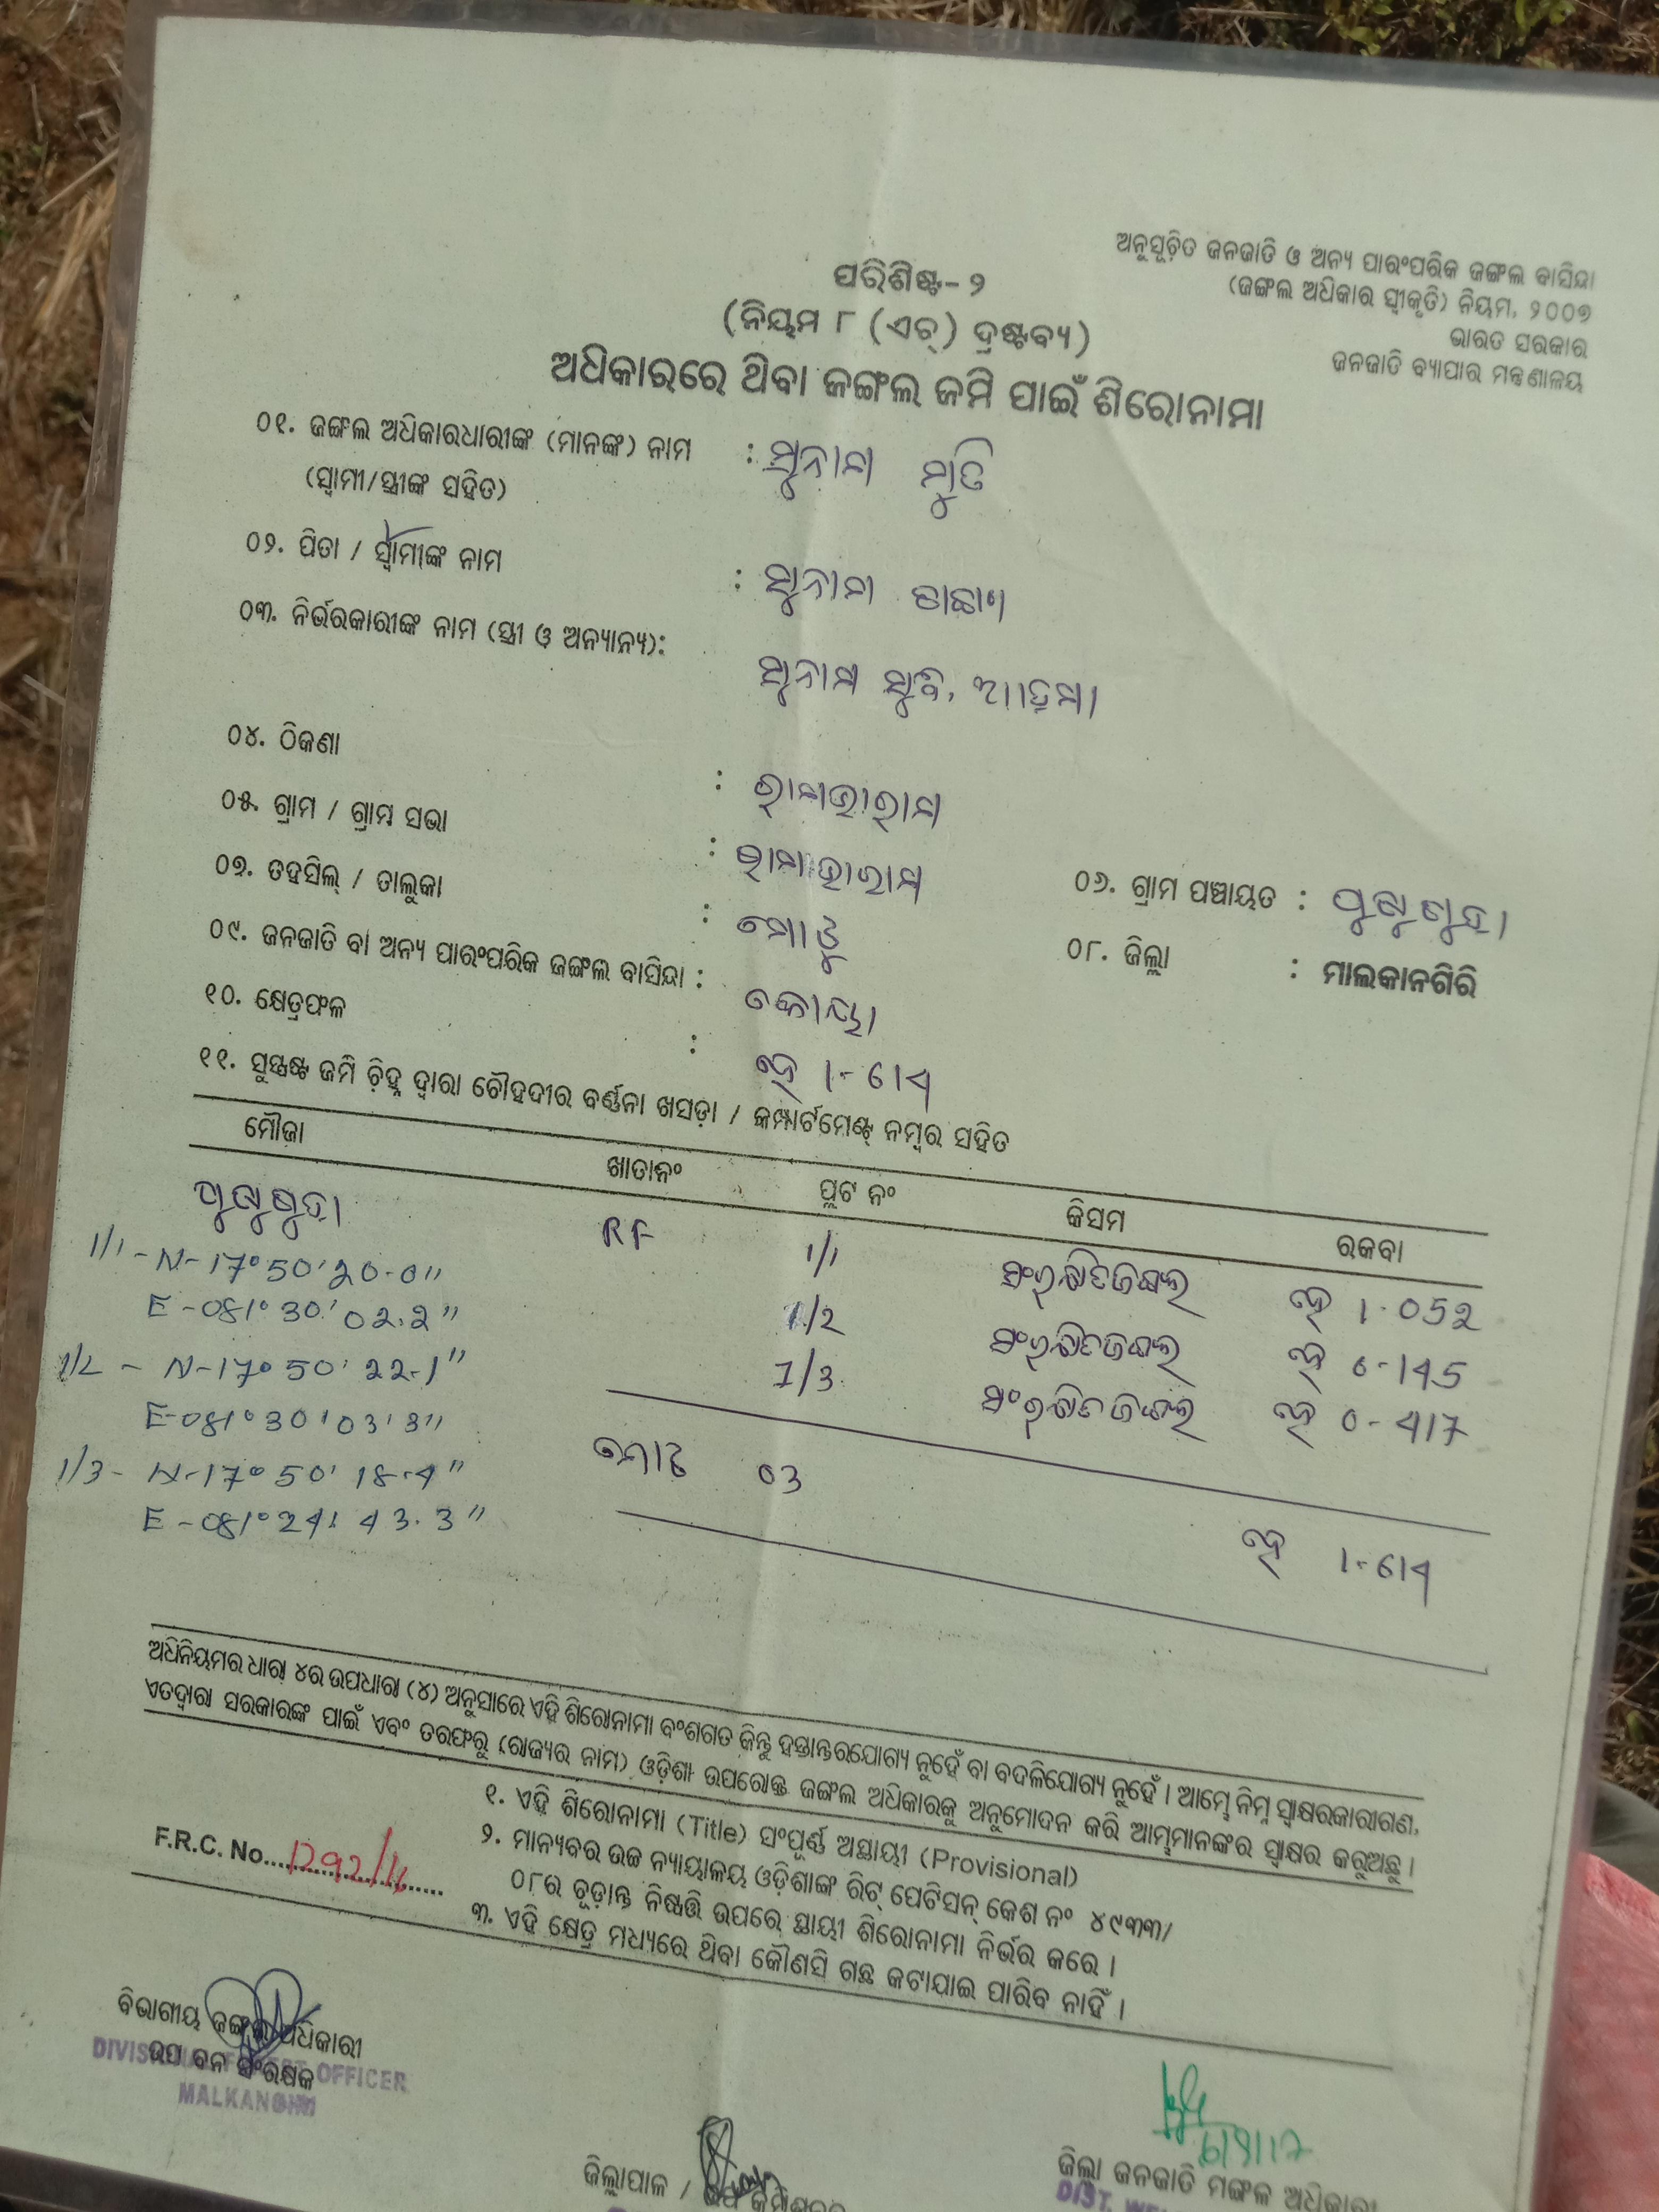 ଅନୁସୂଚିତ ଜନଜାତି ଓ ଅନ୍ୟ ପାରଂପରିକ ଜଙ୍ଗଲ ବାସିନ୍ଦା
(ଜଙ୍ଗଲ ଅଧିକାର ସ୍ୱୀକୃତି) ନିୟମ, ୨୦୦୭
ଭାରତ ସରକାର
ଜନଜାତି ବ୍ୟାପାର ମନ୍ତ୍ରଣାଳୟ
ପରିଶିଷ୍ଟ- ୨
(ନିୟମ ୮ (ଏଚ୍) ଦ୍ରଷ୍ଟବ୍ୟ)
ଅଧିକାରରେ ଥିବା ଜଙ୍ଗଲ ଜମି ପାଇଁ ଶିରୋନାମା
୦୧. ଜଙ୍ଗଲ ଅଧିକାରଧାରୀଙ୍କ (ମାନଙ୍କ) ନାମ :
(ସ୍ୱାମୀ/ସ୍ତ୍ରୀଙ୍କ ସହିତ)
୦୨. ପିତା / ସ୍ୱାମୀଙ୍କ ନାମ :
୦୩. ନିର୍ଭରକାରୀଙ୍କ ନାମ (ସ୍ତ୍ରୀ ଓ ଅନ୍ୟାନ୍ୟ):
୦୪. ଠିକଣା :
୦୫. ଗ୍ରାମ / ଗ୍ରାମ ସଭା : ୦୬. ଗ୍ରାମ ପଞ୍ଚାୟତ :
୦୭. ତହସିଲ୍ / ତାଲୁକା : ମୋଟୁ ୦୮. ଜିଲ୍ଲା : ମାଲକାନଗିରି
୦୯. ଜନଜାତି ବା ଅନ୍ୟ ପାରଂପରିକ ଜଙ୍ଗଲ ବାସିନ୍ଦା : କୋୟା
୧୦. କ୍ଷେତ୍ରଫଳ : ହେ 1-614
୧୧. ସୁସ୍ପଷ୍ଟ ଜମି ଚିହ୍ନ ଦ୍ୱାରା ଚୌହଦୀର ବର୍ଣ୍ଣନା ଖସଡ଼ା / କମ୍ପାର୍ଟମେଣ୍ଟ୍ ନମ୍ବର ସହିତ
ମୌଜା ଖାତାନଂ ପ୍ଲଟ ନଂ କିସମ ରକବା
RF 1/1 ସଂରକ୍ଷିତ ଜଙ୍ଗଲ ହେ 1.052
1/1 - N-17°50'20.0"
E-081°30'02.2" 1/2 ସଂରକ୍ଷିତ ଜଙ୍ଗଲ ହେ 0-145
1/2 - N-17°50'22.1" 1/3 ସଂରକ୍ଷିତ ଜଙ୍ଗଲ ହେ 0-417
E-081°30'03'3"
1/3 - N-17°50'18.4" ମୋଟ 03 ହେ 1-614
E-081°29'43.3"
ଅଧିନିୟମର ଧାରା ୪ର ଉପଧାରା (୪) ଅନୁସାରେ ଏହି ଶିରୋନାମା ବଂଶଗତ କିନ୍ତୁ ହସ୍ତାନ୍ତରଯୋଗ୍ୟ ନୁହେଁ ବା ବଦଳିଯୋଗ୍ୟ ନୁହେଁ । ଆମ୍ଭେ ନିମ୍ନ ସ୍ୱାକ୍ଷରକାରୀଗଣ,
ଏତଦ୍ୱାରା ସରକାରଙ୍କ ପାଇଁ ଏବଂ ତରଫରୁ (ରାଜ୍ୟର ନାମ) ଓଡ଼ିଶା ଉପରୋକ୍ତ ଜଙ୍ଗଲ ଅଧିକାରକୁ ଅନୁମୋଦନ କରି ଆମ୍ଭମାନଙ୍କର ସ୍ୱାକ୍ଷର କରୁଅଛୁ ।
୧. ଏହି ଶିରୋନାମା (Title) ସଂପୂର୍ଣ୍ଣ ଅସ୍ଥାୟୀ (Provisional)
୨. ମାନ୍ୟବର ଉଚ୍ଚ ନ୍ୟାୟାଳୟ ଓଡ଼ିଶାଙ୍କ ରିଟ୍ ପେଟିସନ୍ କେଶ ନଂ ୪୯୩୩/
୦୮ର ଚୂଡ଼ାନ୍ତ ନିଷ୍ପତ୍ତି ଉପରେ ସ୍ଥାୟୀ ଶିରୋନାମା ନିର୍ଭର କରେ ।
୩. ଏହି କ୍ଷେତ୍ର ମଧ୍ୟରେ ଥିବା କୌଣସି ଗଛ କଟାଯାଇ ପାରିବ ନାହିଁ ।
F.R.C. No.
ବିଭାଗୀୟ ଜଙ୍ଗଲ ଅଧିକାରୀ
ଉପ ବନ ସଂରକ୍ଷକ
DIVISIONAL FOREST OFFICER
MALKANGIRI
ଜିଲ୍ଲାପାଳ /
ଜିଲ୍ଲା ଜନଜାତି ମଙ୍ଗଳ ଅଧିକାରୀ
DIST.